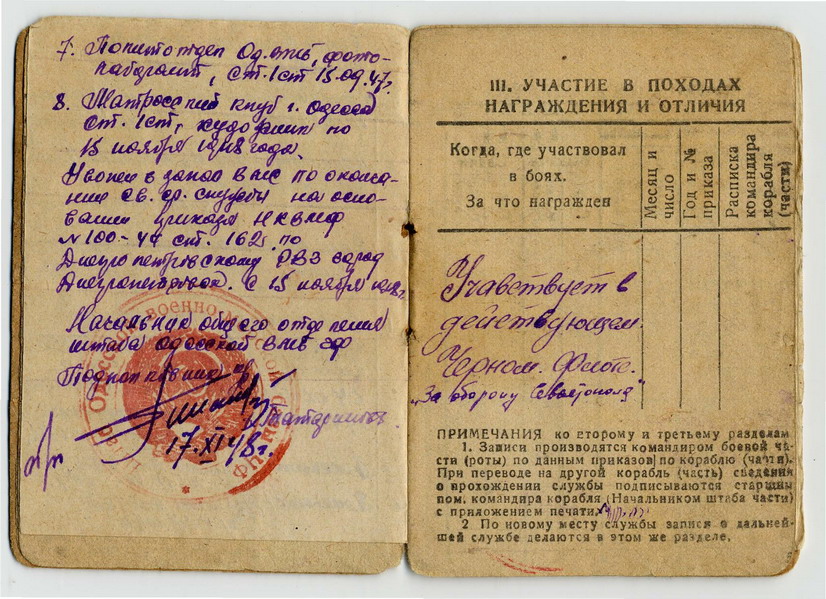 7. Политотдел Од. вмб, фото-
лаборант, ст. 1 ст 15.09.47г.
8. Матросский клуб г. Одесса
ст. 1 ст, художник по
15 ноября 1948 года.
Уволен в запас вмс по оконча-
нии св. ср. службы на осно-
вании приказа НКВМФ
N 100-47 ст. 162 по
Днепропетровскому РВЗ город
Днепропетровск. с 15 ноября 1948г.
Начальник общего отделения
штаба Одесской вмб ЧФ
Подполковник
Татаринов
17.XI.48г.
III. УЧАСТИЕ В ПОХОДАХ
НАГРАЖДЕНИЯ И ОТЛИЧИЯ
Когда, где участвовал
в боях.
За что награжден
Месяц и
число
Год и №
приказа
Расписка
командира
корабля
(части)
Учавствует в
действующем
Черном. Флоте.
„За оборону Севастополя"
ПРИМЕЧАНИЯ ко второму и третьему разделам
1. Записи производятся командиром боевой ча-
сти (роты) по данным приказов по кораблю (части).
При переводе на другой корабль (часть) сведения
о прохождении службы подписываются старшим
пом. командира корабля (Начальником штаба части)
с приложением печати.
2 По новому месту службы записи о дальней-
шей службе делаются в этом же разделе.